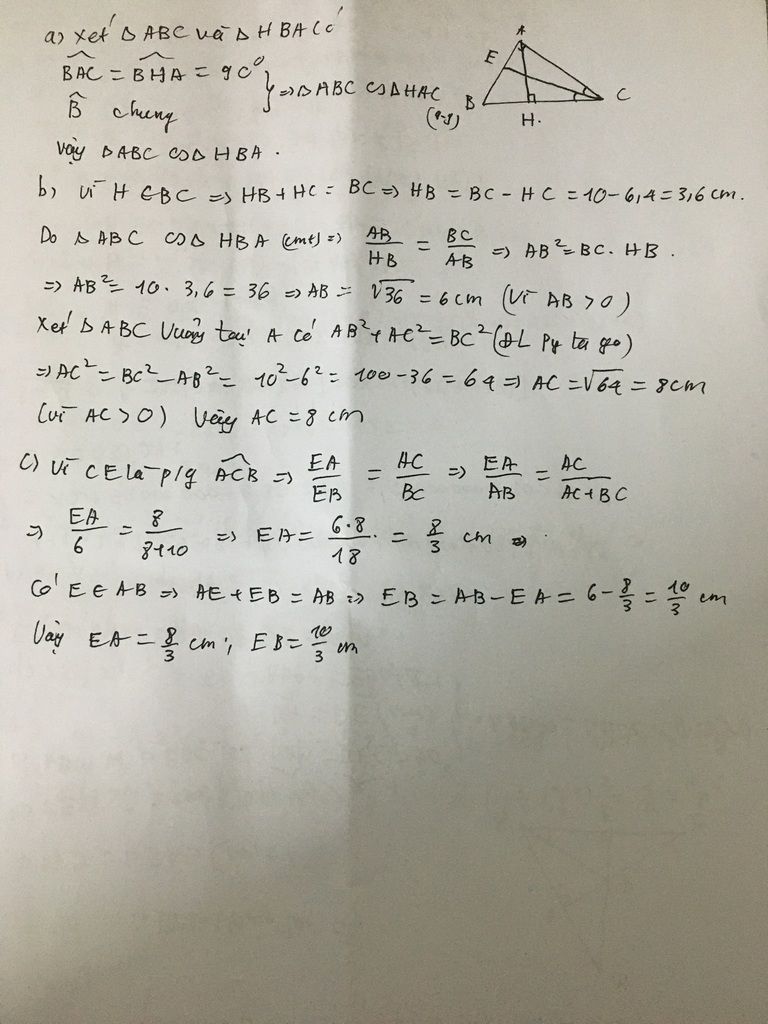 a) Xét Δ ABC và Δ HBA có
BAC = BHA = 90° } => Δ ABC ∽ Δ HAC
B chung (g-g)
A
E
B
H.
C
Vậy Δ ABC ∽ Δ HBA.
b) Vì H ∈ BC => HB + HC = BC => HB = BC - HC = 10 - 6,4 = 3,6 cm.
Do Δ ABC ∽ Δ HBA (cmt) => AB/HB = BC/AB => AB² = BC. HB.
=> AB² = 10. 3,6 = 36 => AB = √36 = 6 cm (Vì AB > 0)
Xét Δ ABC Vuông tại A có AB² + AC² = BC² (ĐL Py ta go)
=> AC² = BC² - AB² = 10² - 6² = 100 - 36 = 64 => AC = √64 = 8cm
(vì AC > 0) Vậy AC = 8 cm
c) Vì CE là p/g ACB => EA/EB = AC/BC => EA/AB = AC/AC+BC
=> EA/6 = 8/8+10 => EA = 6.8/18 = 8/3 cm =>
Có E ∈ AB => AE + EB = AB => EB = AB - EA = 6 - 8/3 = 10/3 cm
Vậy EA = 8/3 cm; EB = 10/3 cm